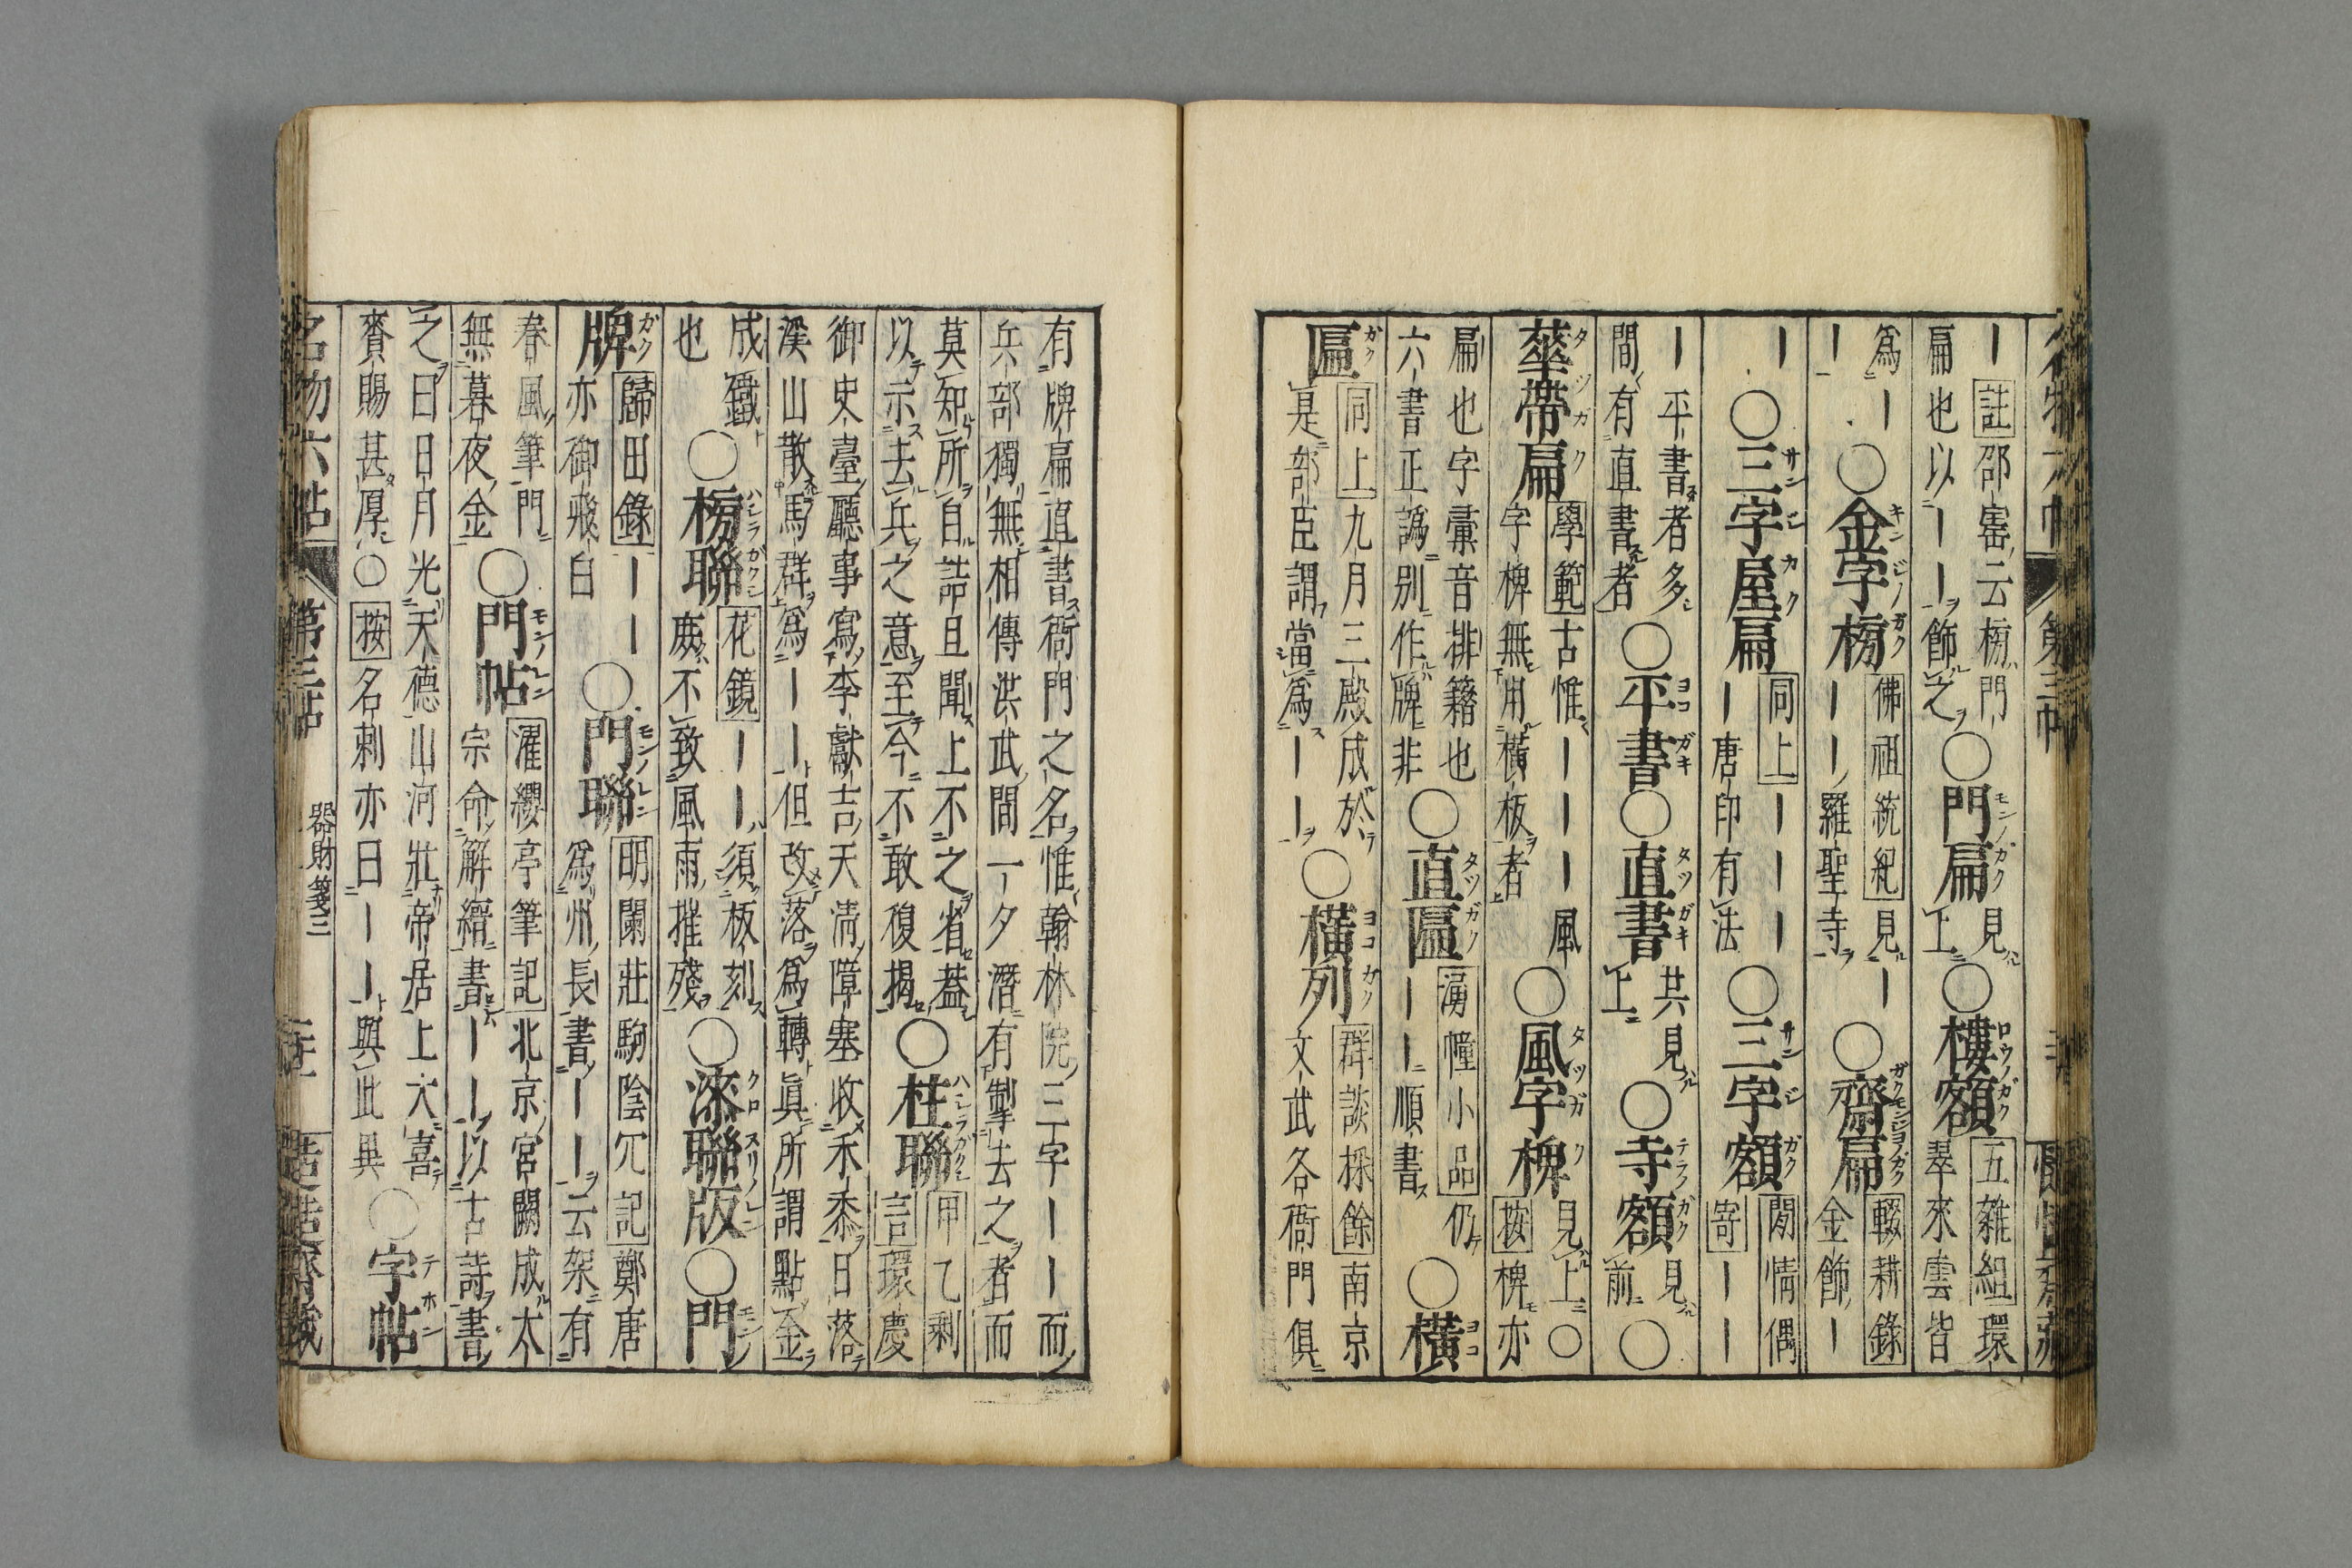 ー註邵窰云榜門扁也以ーー飾之○門扁見上○樓額五雜組環翠來雲皆
爲ーー○金字榜佛祖統紀見ーーー羅聖寺○齋扁輟耕錄金飾ー
ー○三字屋扁同上ーーーー唐印有法○三字額閒情偶寄ーー
ー平書者多間有直書者○平書○直書共見上○寺額見前○
蕐帶扁學範古惟ーーー風字椑無用橫板者○風字椑見上○按椑亦
扁也字彙音排籍也六書正譌別作牌非○直匾湧幢小品仍ーー順書○橫
匾同上九月三殿成於是部臣謂當爲ーー○橫列群談採餘南京文武各衙門俱
有牌扁直書衙門之名惟翰林院三字ーー而兵部獨無相傳洪武間一夕潛有掣去之者而
莫知所自詰且聞上不之省葢以示去兵之意至今不敢復揭○柱聯甲乙剩言環慶
御史臺廳事寫李獻吉天淸障塞收禾黍日落溪山散馬群爲ーー但改落爲轉眞所謂點金
成鐵也○榜聯花鏡ーー須板刻庶不致風雨摧殘○漆聯版○門
牌歸田錄ーー亦御飛白○門聯明闌莊駒陰冗記鄭唐爲州長書ーー云架有
春風筆門無暮夜金○門帖濯纓亭筆記北京宮闕成太宗命解縉書ーー以古詩書
之曰日月光天德山河壯帝居上大喜賚賜甚厚○按名刺亦曰ーー與此異○字帖
名物六帖 第三帖 器財箋三